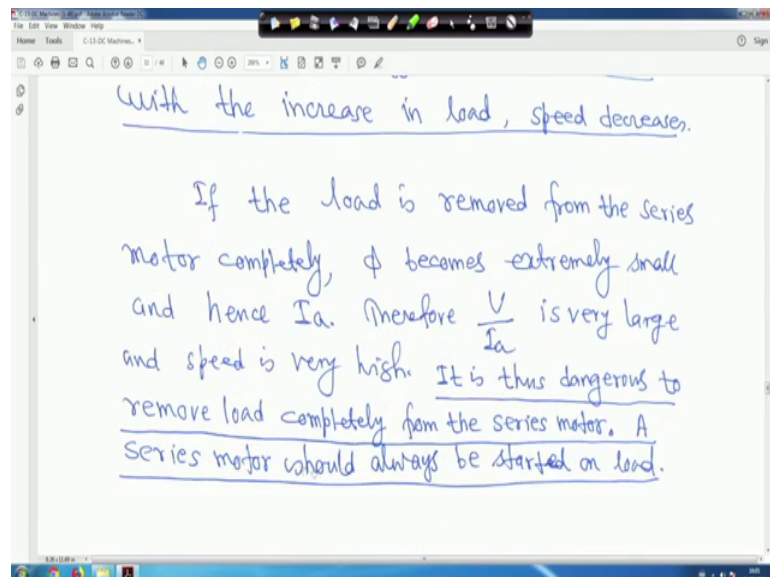 C-13-DC Machines (1-46).pdf - Adobe Acrobat Reader DC
File Edit View Window Help
Home Tools C-13-DC Machines... × Sign
32 / 46
With the increase in load, speed decreases.
If the load is removed from the series
motor completely, ϕ becomes extremely small
and hence Ia. Therefore V/Ia is very large
and speed is very high. It is thus dangerous to
remove load completely from the series motor. A
series motor should always be started on load.